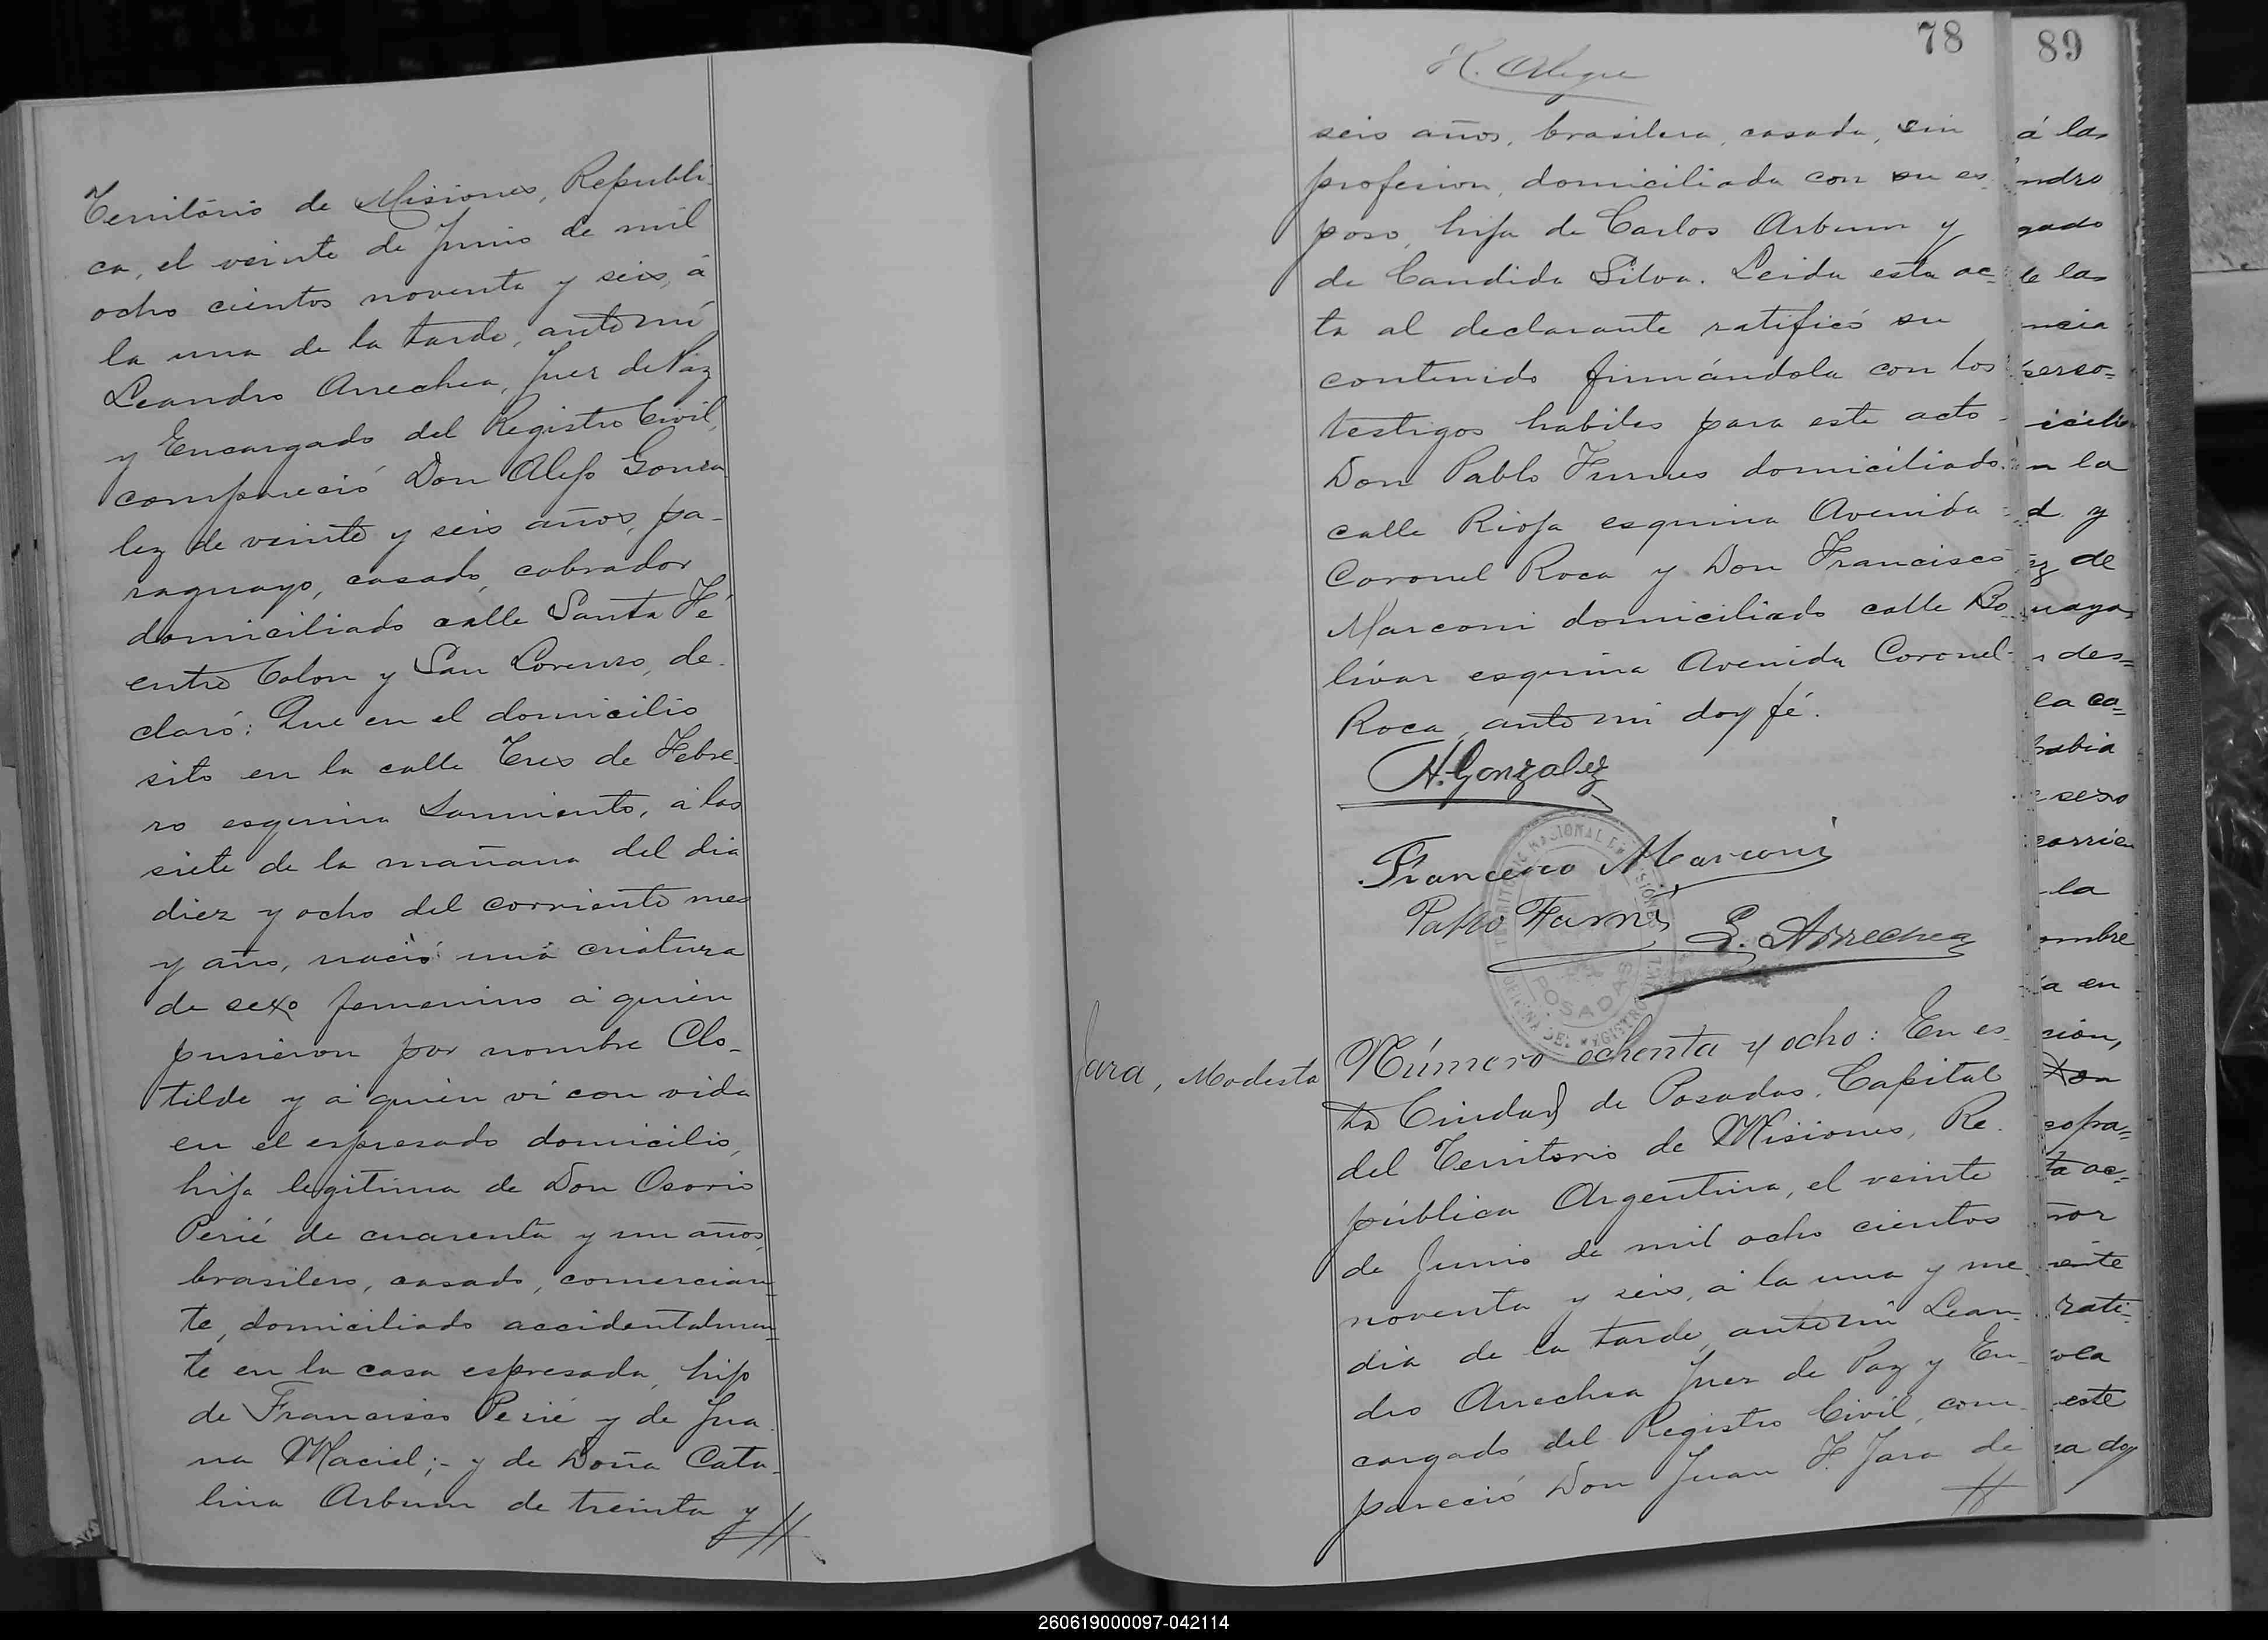 Territorio de Misiones, Republi-
ca, el veinte de Junio de mil
ocho cientos noventa y seis, á
la una de la tarde, ante mi
Leandro Arrechea, Juez de Paz
y Encargado del Registro Civil,
compareció Don Alejo Gonza
lez de veinte y seis años, pa-
raguayo, casado, cobrador
domiciliado calle Santa Fé
entre Colon y San Lorenzo, de-
claró: Que en el domicilio
sito en la calle Tres de Febre-
ro esquina Sarmiento, á las
siete de la mañana del dia
diez y ocho del corriente mes
y año, nació una criatura
de sexo femenino á quien
pusieron por nombre Clo-
tilde y á quien ví con vida
en el espresado domicilio,
hija legítima de Don Osorio
Perié de cuarenta y un años,
brasilero, casado, comercian-
te, domiciliado accidentalmen-
te en la casa espresada, hijo
de Francisco Perié y de Jua-
na Maciel;- y de Doña Cata-
lina Arbum de treinta y //
78
seis años, brasilera, casada, sin
profesion, domiciliada con su es-
poso, hija de Carlos Arbum y
de Candida Silva. Leida esta ac-
ta al declarante ratificó su
contenido firmándola con los
testigos habiles para este acto
Don Pablo Furnes domiciliado
calle Rioja esquina Avenida
Coronel Roca y Don Francisco
Marconi domiciliado calle Bo-
lívar esquina Avenida Coronel
Roca, ante mi doy fé.
A. Gonzalez
Francesco Marconi
L. Arrechea
POSADAS
Jara, Modesta
Número ochenta y ocho: En es-
ta Ciudad de Posadas, Capital
del Territorio de Misiones, Re-
pública Argentina, el veinte
de Junio de mil ocho cientos
noventa y seis, á la una y me-
dia de la tarde, ante mi Lean-
dro Arrechea Juez de Paz y En-
cargado del Registro Civil, com-
pareció Don Juan F. Jara de
//
89
á las
ndro
gado
de las
ncia
perso=
n la
d y
ez de
uaya
des=
la ca=
habia
sexo
corrie
la
ombre
a en
sion,
Don
ta ac=
nor
ente
rati-
este
a doy
260619000097-042114